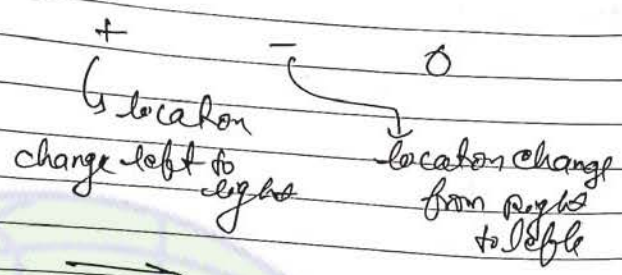 + - 0
location
change left to
right
location change
from right
to left